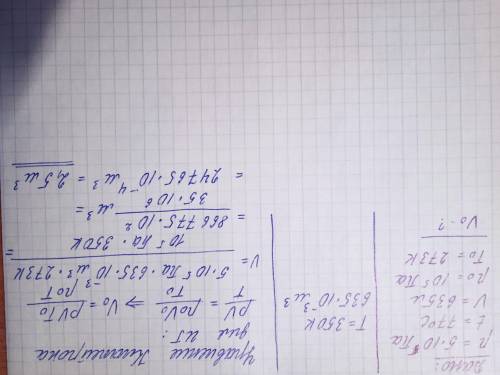 Дано:
p = 5·10⁵ Па
t = 77°C
V = 635 л
p₀ = 10⁵ Па
T₀ = 273 К
V₀ - ?
T = 350 К
635·10⁻³ м³
Уравнение Клапейрона
для ИГ:
pV/T = p₀V₀/T₀ ⇒ V₀ = pVT₀/p₀T
V = 5·10⁵ Па · 635·10⁻³ м³ · 273 К / 10⁵ Па · 350 К =
= 866 775·10² / 35·10⁶ м³ =
= 24765·10⁻⁴ м³ = 2,5 м³